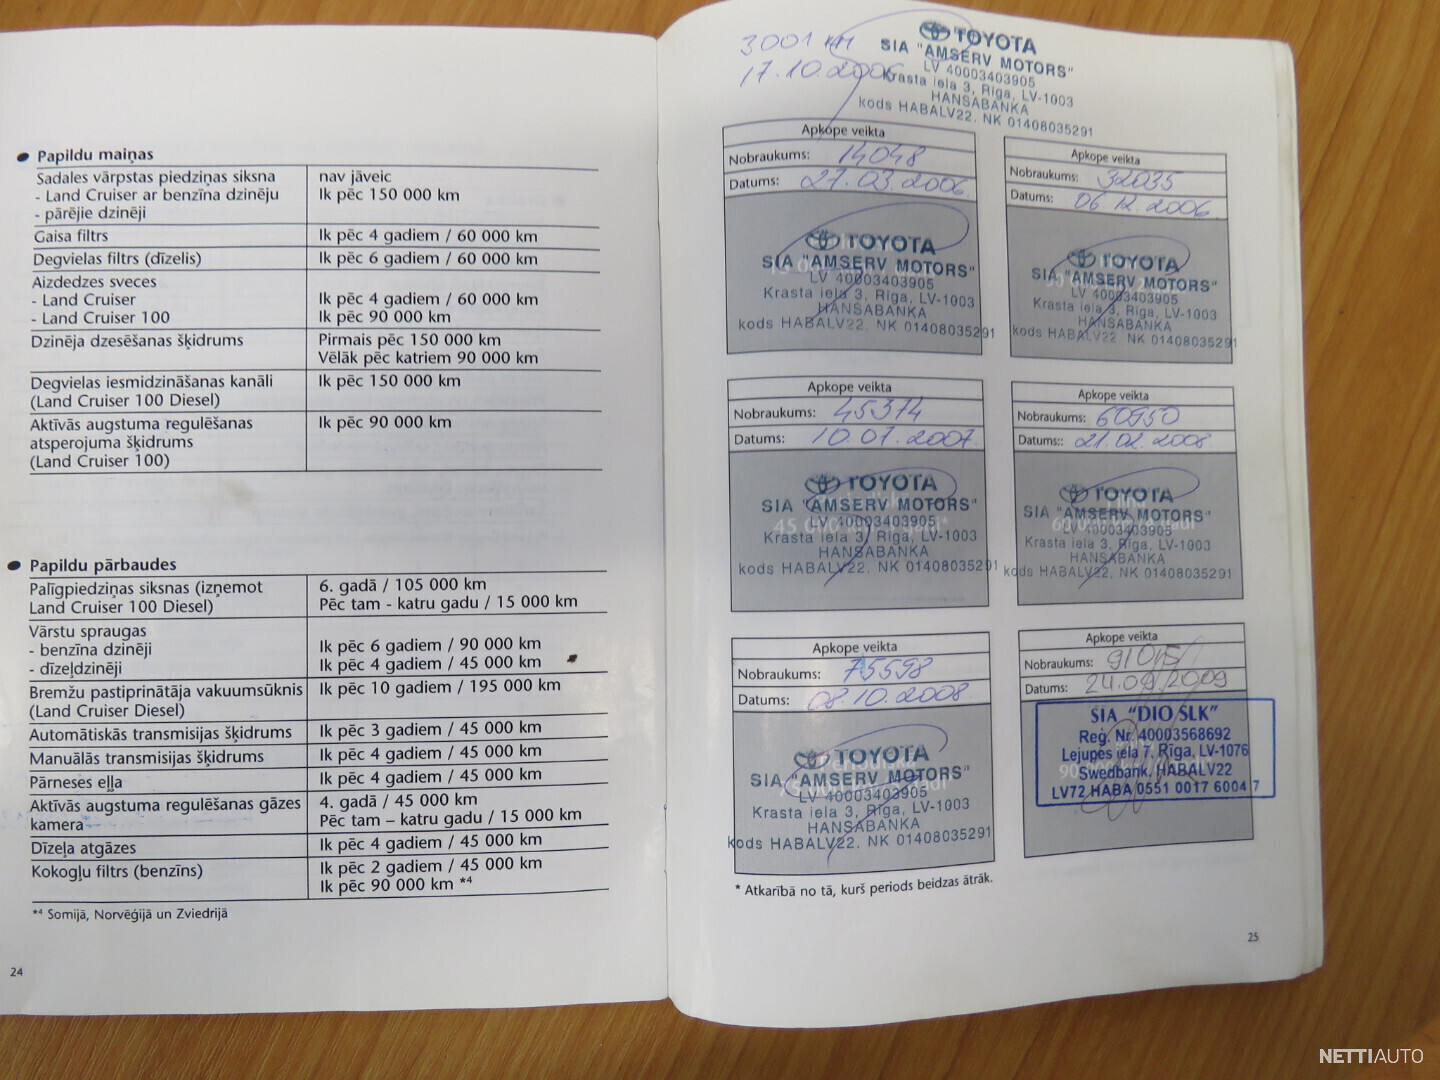 Papildu maiņas
Sadales vārpstas piedziņas siksna
- Land Cruiser ar benzīna dzinēju
- pārējie dzinēji
nav jāveic
Ik pēc 150 000 km
Gaisa filtrs
Ik pēc 4 gadiem / 60 000 km
Degvielas filtrs (dīzelis)
Ik pēc 6 gadiem / 60 000 km
Aizdedzes sveces
- Land Cruiser
- Land Cruiser 100
Ik pēc 4 gadiem / 60 000 km
Ik pēc 90 000 km
Dzinēja dzesēšanas šķidrums
Pirmais pēc 150 000 km
Vēlāk pēc katriem 90 000 km
Degvielas iesmidzināšanas kanāli
(Land Cruiser 100 Diesel)
Ik pēc 150 000 km
Aktīvās augstuma regulēšanas
atsperojuma šķidrums
(Land Cruiser 100)
Ik pēc 90 000 km
Papildu pārbaudes
Palīgpiedziņas siksnas (izņemot
Land Cruiser 100 Diesel)
6. gadā / 105 000 km
Pēc tam - katru gadu / 15 000 km
Vārstu spraugas
- benzīna dzinēji
- dīzeļdzinēji
Ik pēc 6 gadiem / 90 000 km
Ik pēc 4 gadiem / 45 000 km
Bremžu pastiprinātāja vakuumsūknis
(Land Cruiser Diesel)
Ik pēc 10 gadiem / 195 000 km
Automātiskās transmisijas šķidrums
Ik pēc 3 gadiem / 45 000 km
Manuālās transmisijas šķidrums
Ik pēc 4 gadiem / 45 000 km
Pārneses eļļa
Ik pēc 4 gadiem / 45 000 km
Aktīvās augstuma regulēšanas gāzes
kamera
4. gadā / 45 000 km
Pēc tam – katru gadu / 15 000 km
Dīzeļa atgāzes
Ik pēc 4 gadiem / 45 000 km
Kokogļu filtrs (benzīns)
Ik pēc 2 gadiem / 45 000 km
Ik pēc 90 000 km *4
*4 Somijā, Norvēģijā un Zviedrijā
24
3001 km
17.10.2006
TOYOTA
SIA "AMSERV MOTORS"
LV 40003403905
Krasta iela 3, Rīga, LV-1003
HANSABANKA
kods HABALV22. NK 01408035291
Apkope veikta
Nobraukums: 14048
Datums: 27.03.2006.
TOYOTA
SIA "AMSERV MOTORS"
LV 40003403905
Krasta iela 3, Rīga, LV-1003
HANSABANKA
kods HABALV22. NK 01408035291
Apkope veikta
Nobraukums: 32035
Datums: 06.12.2006.
TOYOTA
SIA "AMSERV MOTORS"
LV 40003403905
Krasta iela 3, Rīga, LV-1003
HANSABANKA
kods HABALV22. NK 01408035291
Apkope veikta
Nobraukums: 45374
Datums: 10.07.2007.
TOYOTA
SIA "AMSERV MOTORS"
LV 40003403905
Krasta iela 3, Rīga, LV-1003
HANSABANKA
kods HABALV22. NK 01408035291
Apkope veikta
Nobraukums: 60950
Datums:: 21.02.2008
TOYOTA
SIA "AMSERV MOTORS"
LV 40003403905
Krasta iela 3, Rīga, LV-1003
HANSABANKA
kods HABALV22, NK 01408035291
Apkope veikta
Nobraukums: 75598
Datums: 08.10.2008
TOYOTA
SIA "AMSERV MOTORS"
LV 40003403905
Krasta iela 3, Rīga, LV-1003
HANSABANKA
kods HABALV22. NK 01408035291
Apkope veikta
Nobraukums: 91015
Datums: 24.09.2009
SIA "DIO SLK"
Reģ. Nr. 40003568692
Lejupes iela 7, Rīga, LV-1076
Swedbank, HABALV22
LV72 HABA 0551 0017 6004 7
* Atkarībā no tā, kurš periods beidzas ātrāk.
25
NETTIAUTO